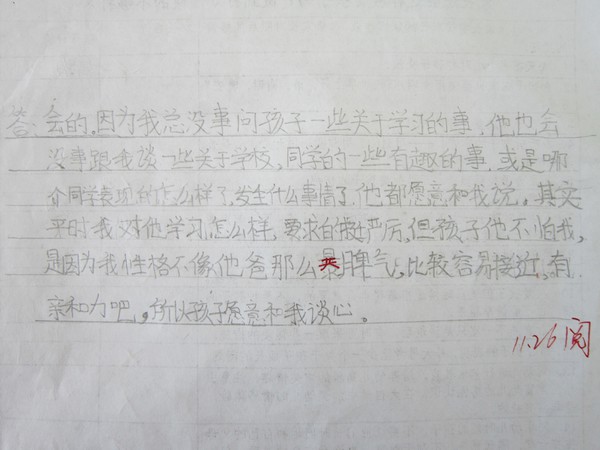 答:会的,因为我总没事问孩子一些关于学习的事,他也会
没事跟我谈一些关于学校,同学的一些有趣的事,或是哪
个同学表现的怎么样了,发生什么事情了,他都愿意和我说。其实
平时我对他学习怎么样,要求的挺严厉,但孩子他不怕我,
是因为我性格不像他爸那么脾气,比较容易接近,有
亲和力吧。所以孩子愿意和我谈心。
11.26阅